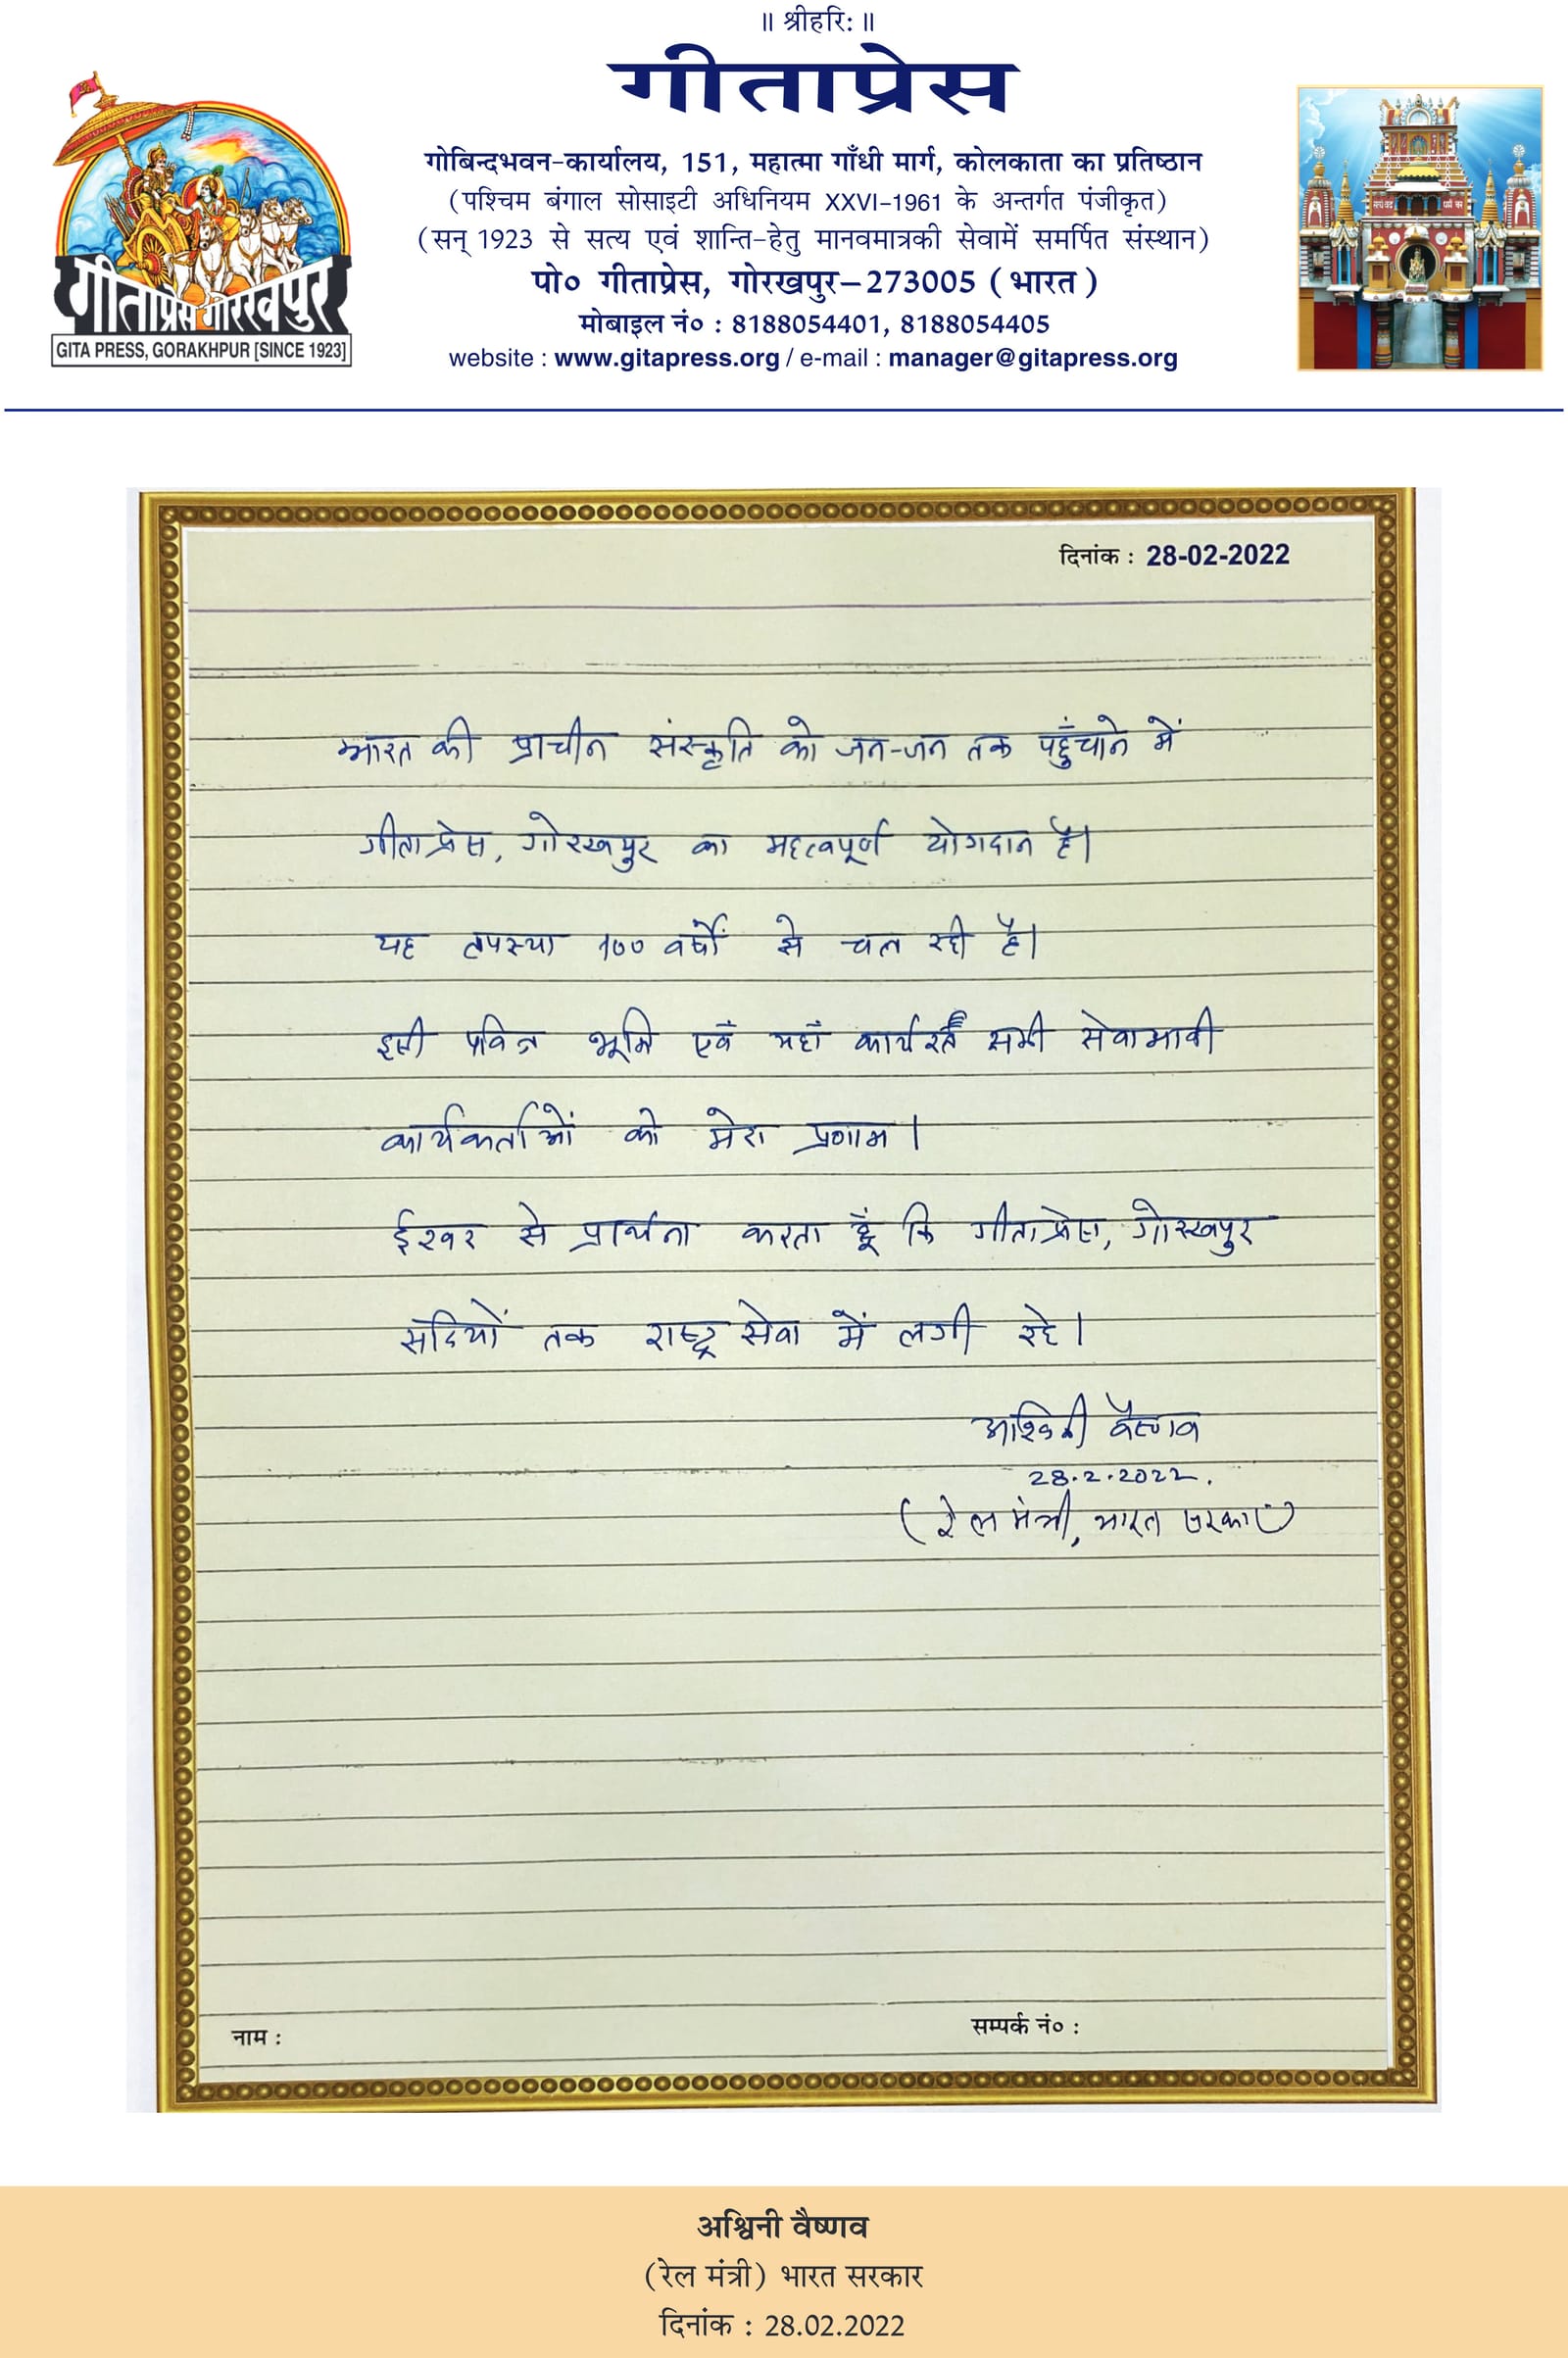 ॥ श्रीहरि: ॥
गीताप्रेस
गोबिन्दभवन-कार्यालय, 151, महात्मा गाँधी मार्ग, कोलकाता का प्रतिष्ठान
(पश्चिम बंगाल सोसाइटी अधिनियम XXVI-1961 के अन्तर्गत पंजीकृत)
(सन् 1923 से सत्य एवं शान्ति-हेतु मानवमात्रकी सेवामें समर्पित संस्थान)
पो० गीताप्रेस, गोरखपुर–273005 (भारत)
मोबाइल नं० : 8188054401, 8188054405
website : www.gitapress.org / e-mail : manager@gitapress.org
गीताप्रेस गोरखपुर
GITA PRESS, GORAKHPUR [SINCE 1923]
दिनांक : 28-02-2022
भारत की प्राचीन संस्कृति को जन-जन तक पहुँचाने में
गीताप्रेस, गोरखपुर का महत्वपूर्ण योगदान है।
यह तपस्या १०० वर्षों से चल रही है।
इसी पवित्र भूमि एवं यहाँ कार्यरत सभी सेवाभावी
कार्यकर्ताओं को मेरा प्रणाम।
ईश्वर से प्रार्थना करता हूँ कि गीताप्रेस, गोरखपुर
सदियों तक राष्ट्र सेवा में लगी रहे।
अश्विनी वैष्णव
28.2.2022.
(रेल मंत्री, भारत सरकार)
नाम :
सम्पर्क नं० :
अश्विनी वैष्णव
(रेल मंत्री) भारत सरकार
दिनांक : 28.02.2022